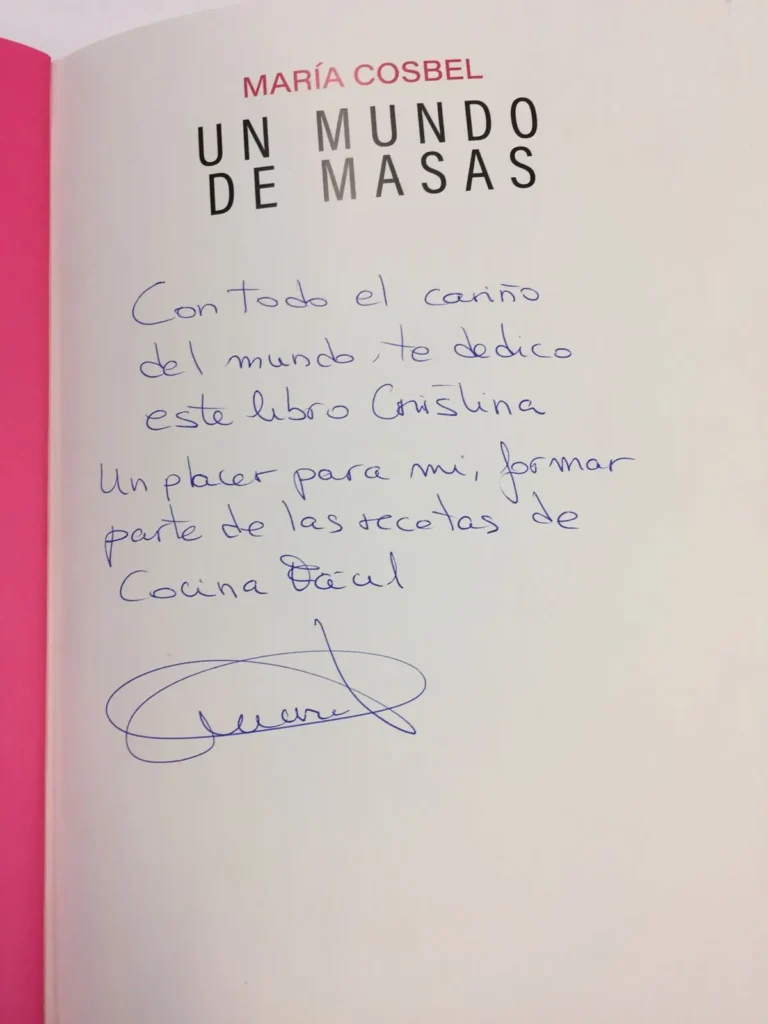 MARÍA COSBEL
UN MUNDO
DE MASAS
Con todo el cariño
del mundo, te dedico
este libro Cristina
Un placer para mi, formar
parte de las recetas de
Cocina Fácil